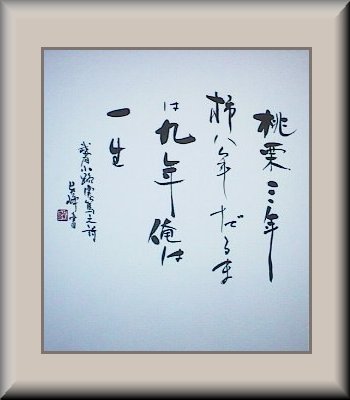 桃栗三年
柿八年だるま
は九年俺は
一生
武者小路実篤之詩